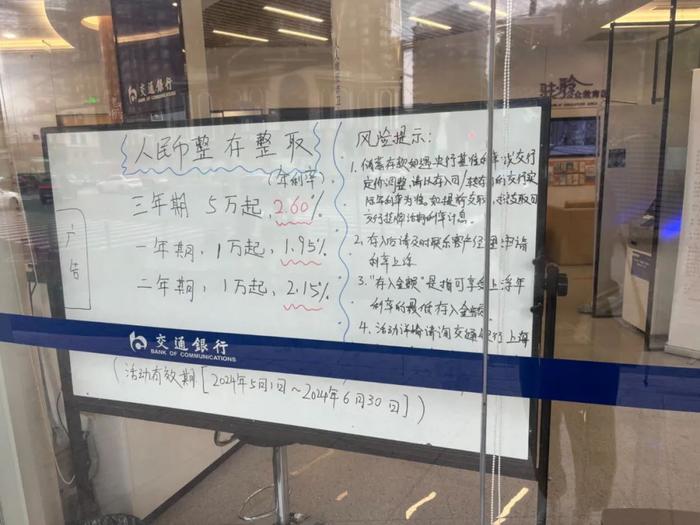 交通銀行
BANK OF COMMUNICATIONS
人民币整存整取
(年利率)
三年期 5万起, 2.60%
一年期, 1万起, 1.95%
二年期, 1万起, 2.15%
广告
风险提示:
1. 储蓄存款如遇央行基准利率或交行
定价调整, 请以存入日/转存日的交行实
际年利率为准, 如提前支取, 按支取日
交行挂牌活期利率计息.
2. 存入后请及时联系客户经理申请
利率上浮
3. "存入金额"是指可享受上浮年
利率的最低存入金额.
4. 活动详情请询交通银行上海
交通銀行
BANK OF COMMUNICATIONS
(活动有效期[2024年5月1日~2024年6月30日])